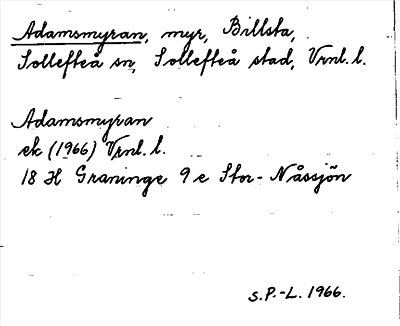 Adamsmyran, myr, Billsta,
Sollefteå sn, Sollefteå stad, Vrnl. l.
Adamsmyran
ek (1966) Vrnl. l.
18 H Graninge 9 e Stor-Nåssjön
S.P.-L. 1966.